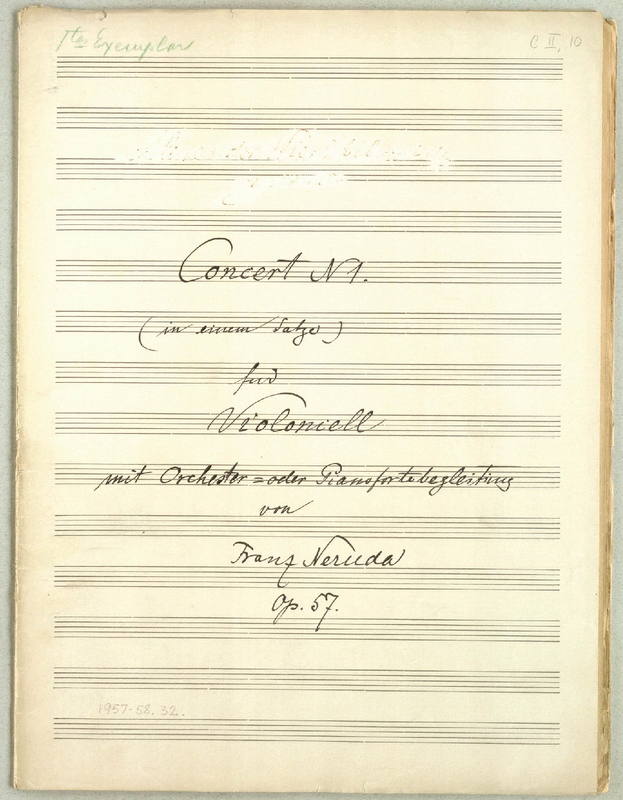 1tes Exemplar
C II, 10
Concert N 1.
(in einem Satze)
für
Violoncell
mit Orchester = oder Pianofortebegleitung
von
Franz Neruda
Op. 57.
1957-58. 32.